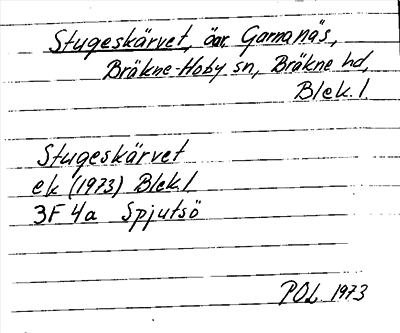 Stugeskärvet, öar, Garnanäs,
Bräkne-Hoby sn, Bräkne hd,
Blek. l.
Stugeskärvet
ek (1973) Blek. l
3F 4a Spjutsö
POL 1973